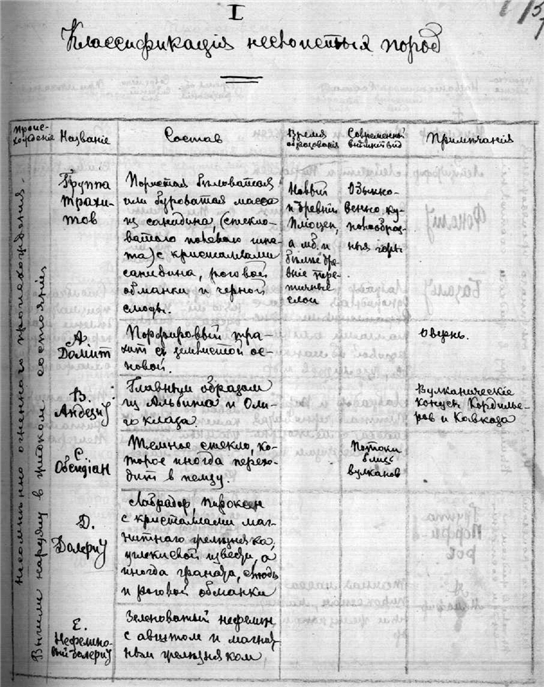 I
Классификація неслоистыхъ породъ
Проис-
хожденіе
Названіе
Составъ
Время
образованія
Современный
Примѣчанія
Несомнѣнно огненнаго происхожденія.
Вышли наружу в жидком состояніи
Группа
трахи-
тов
Пористая бѣловатая
или буроватая масса
из санидина, (стекло-
ватаго полеваго шпа-
та) с кристаллами
санидина, роговой
обманки и черной
слюды.
Новый
и древній
Плиоцен,
а м.б. и
болѣе дре-
вніе тре-
тичные
слои
Обыкно-
венно ку-
полообраз-
ныя горы
А.
Домит
Порфировый тра-
хит съ землистой ос-
новой.
Овернь.
В.
Андезит
Главным образом
из Альбита и Оли-
гоклаза.
Вулканическіе
конусы Кордилье-
ров и Кавказа
С
Обсидіан
Темное стекло, ко-
торое иногда перехо-
дит в пемзу.
Потоки
близ
вулканов
D.
Долерит
Лабрадор, пироксен
с кристаллами маг-
нитнаго желѣзняка,
углекислой извести, а
иногда граната, слюды
и роговой обманки
Е.
Нефелино-
вый долерит
Зеленоватый нефелин
с авгитом и магнит-
ным желѣзняком
Фонолит
Базальт
Группа
Порфи-
ров